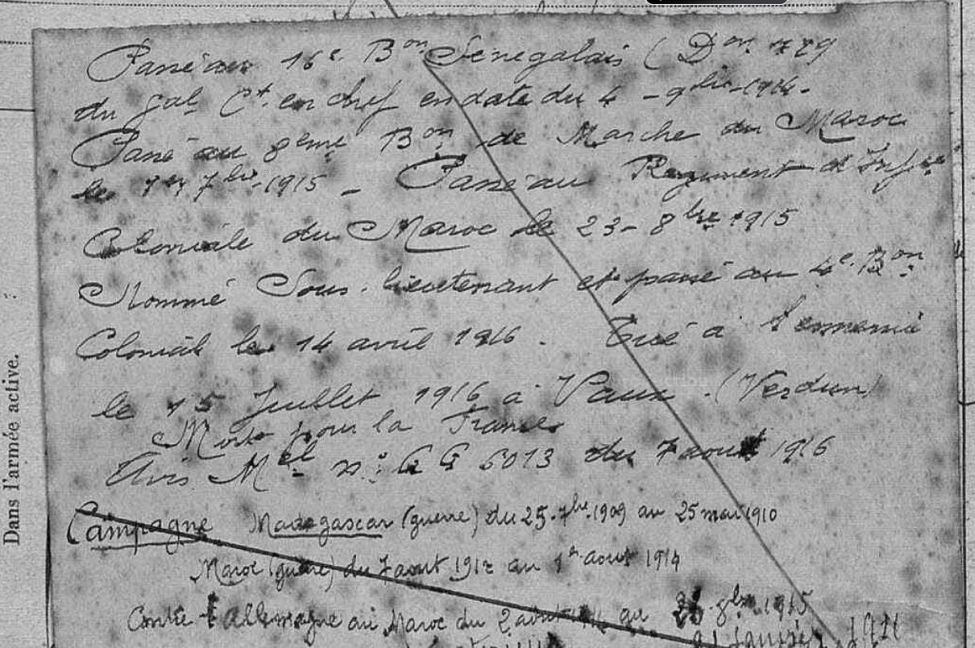 Passé au 16e Bon Sénégalais (Don 779
du Gal Ct en chef en date du 4 - 9bre - 1914.
Passé au 8eme Bon de Marche du Maroc
le 1er 7bre 1915 _ Passé au Régiment d'Infie
Coloniale du Maroc le 23 - 8bre 1915
Nommé Sous-lieutenant et passé au 4e Bon
Colonial le 14 avril 1916. Tué à l'ennemi
le 15 Juillet 1916 à Vaux. (Verdun)
Mort pour la France
Avis Mel n° 6013 du 7 aout 1916
Dans l'armée active.
Campagne Madagascar (guerre) du 25-7bre 1909 au 25 mai 1910
Maroc (guerre) du 7 aout 1912 au 1er aout 1914
Contre l'Allemagne au Maroc du 2 au 8bre 1915
Janvier